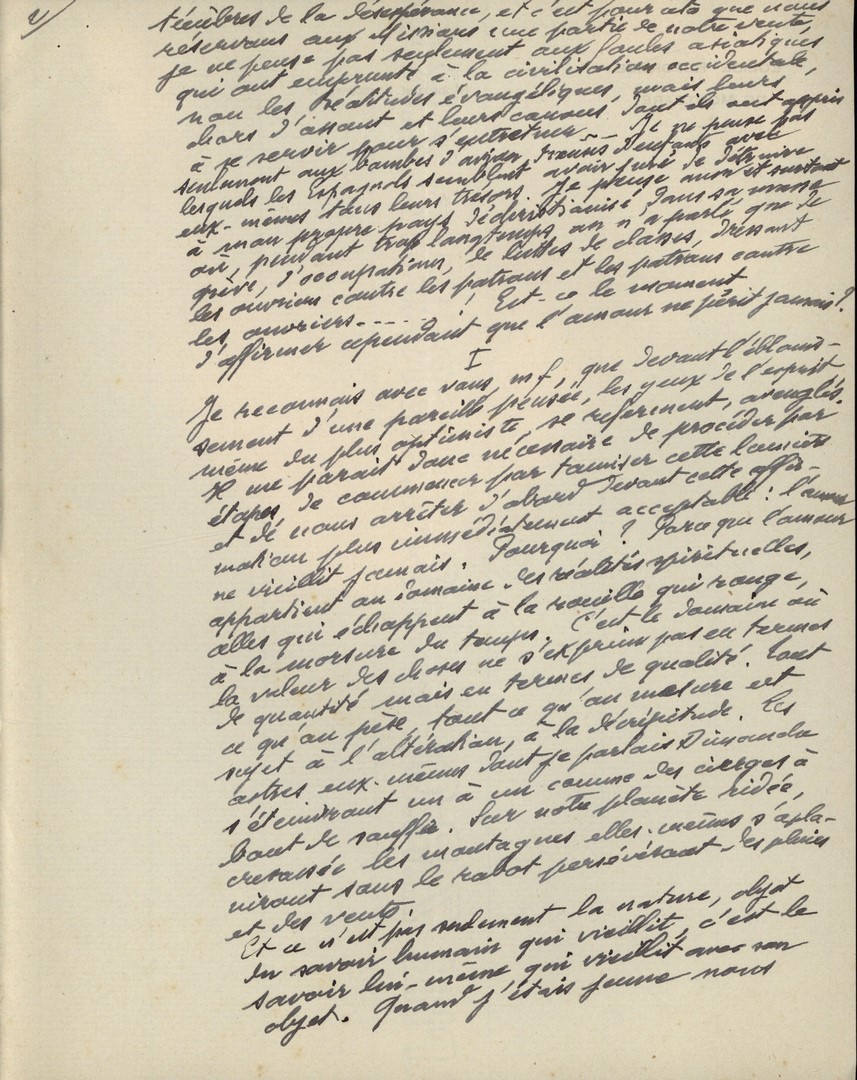 2/
ténèbres de la désespérance, et c'est pour cela que nous
réservons aux Missions une partie de notre vente,
je ne pense pas seulement aux foules asiatiques
qui ont emprunté à la civilisation occidentale,
non les béatitudes évangéliques, mais leurs
chars d'assaut et leurs canons, dont ils ont appris
à se servir pour s'entretuer. Je ne pense pas
seulement aux bombes d'avion d'enfants avec
lesquels les Espagnols semblent avoir juré de détruire
eux-mêmes tous leurs trésors. Je pense aussi et surtout
à mon propre pays déchristianisé dans sa masse
où, pendant trop longtemps on n'a parlé que de
grève, d'occupations, de luttes de classes, dressant
les ouvriers contre les patrons et les patrons contre
les ouvriers.....! Est-ce le moment
d'affirmer cependant que l'amour ne périt jamais?
I
Je reconnais avec vous, m f, que devant l'éblouis-
sement d'une pareille pensée, les yeux de l'esprit
même du plus optimiste, se referment, aveuglés.
Il me parait donc nécessaire de procéder par
étapes, de commencer par tamiser cette lumière
et de nous arrêter d'abord devant cette affir-
mation plus immédiatement acceptable: l'amour
ne vieillit jamais. Pourquoi? Parce que l'amour
appartient au domaine des réalités spirituelles,
celles qui échappent à la rouille qui ronge,
à la morsure du temps. C'est le domaine où
la valeur des choses ne s'exprime pas en termes
de quantité mais en termes de qualité. Tout
ce qu'on pèse, tout ce qu'on mesure est
sujet à l'altération, à la décrépitude. Les
astres eux-mêmes dont je parlais Dimanche
s'éteindront un à un comme des cierges à
bout de souffle. Sur notre planète ridée,
crevassée les montagnes elles-mêmes s'apla-
niront sous le rabot persévérant des pluies
et des vents.
Et ce n'est pas seulement la nature, objet
du savoir humain qui vieillit, c'est le
savoir lui-même qui vieillit avec son
objet. Quand j'étais jeune nous